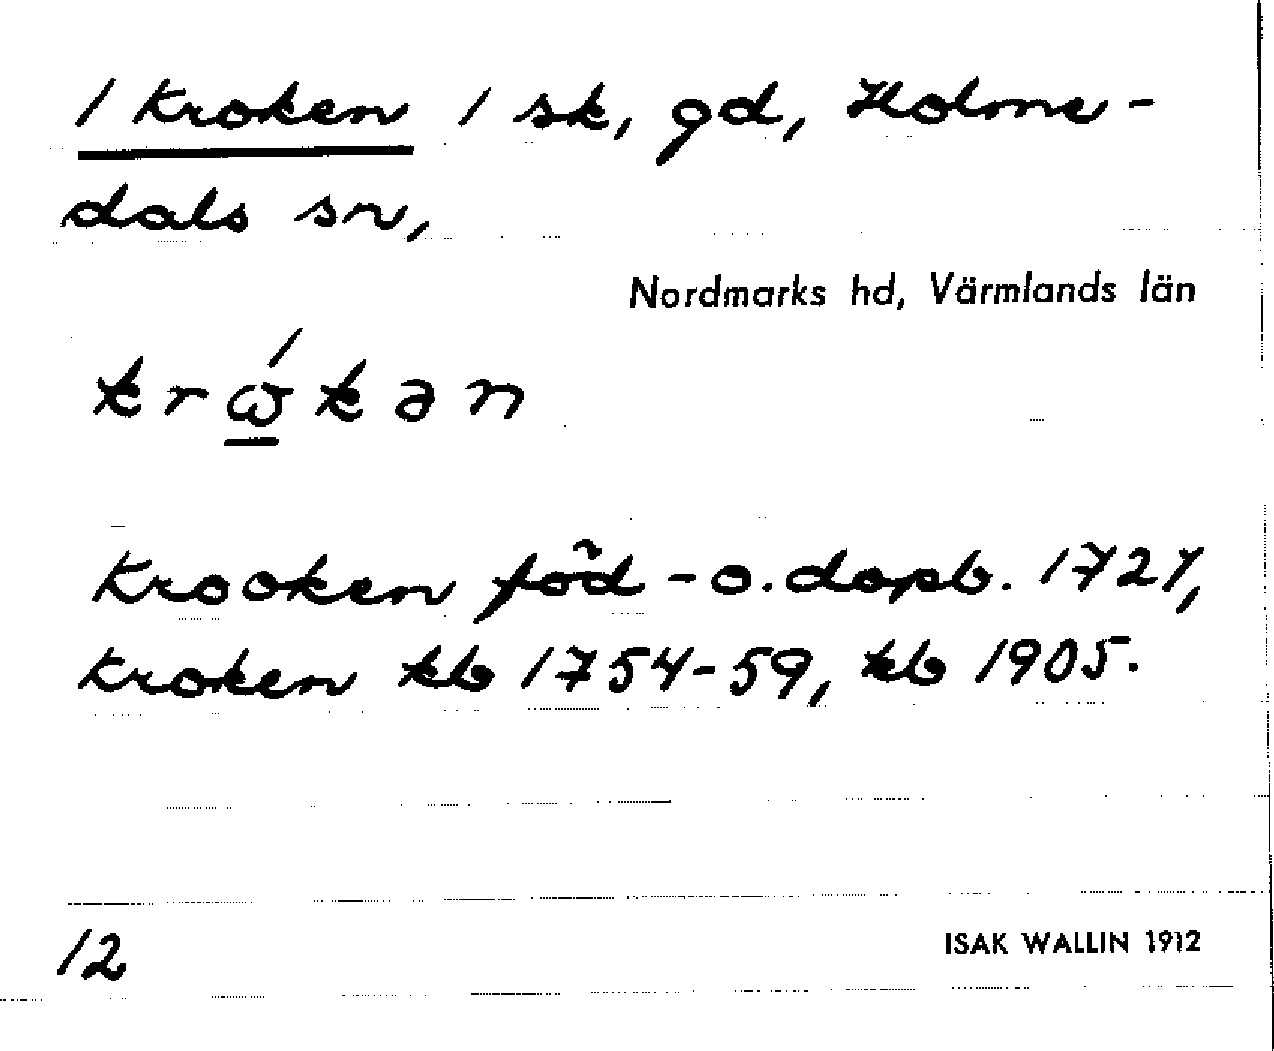 1 Kroken 1 sk, gd, Holme-
dals sn,
Nordmarks hd, Värmlands län
krώ̲kən
Krooken föd-o.dopb. 1727,
Kroken kb 1754-59, kb 1905.
12
ISAK WALLIN 1912